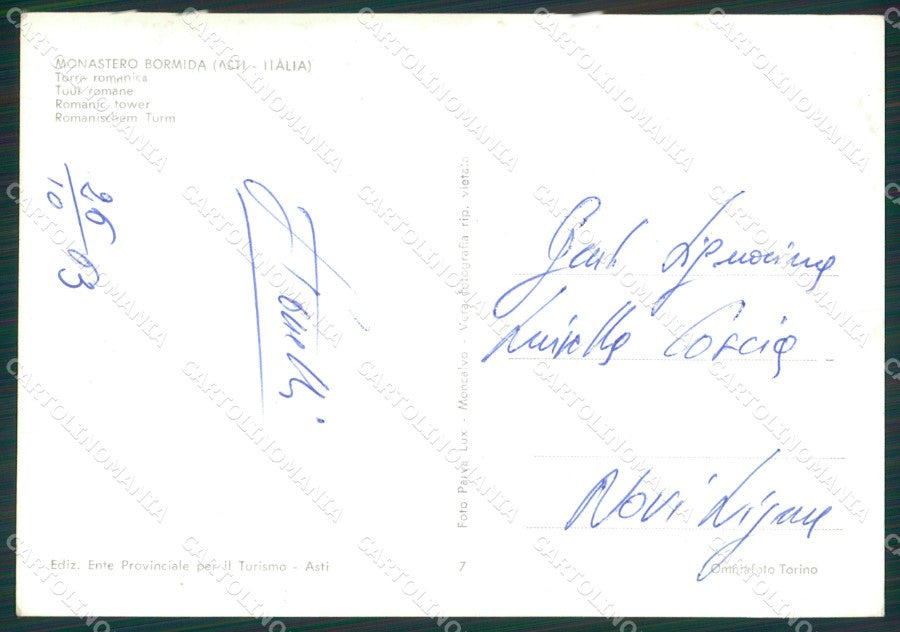 MONASTERO BORMIDA (ASTI - ITALIA)
Torre romanica
Tour romane
Romanic tower
Romanischem Turm
26
10
63
Gent. Signorina
Luisella Coscia
Novi Ligure
Foto Parva Lux - Moncalvo - Vera fotografia rip. vietata
Ediz. Ente Provinciale per il Turismo - Asti
7
Omniafoto Torino
CARTOLINOMANIA